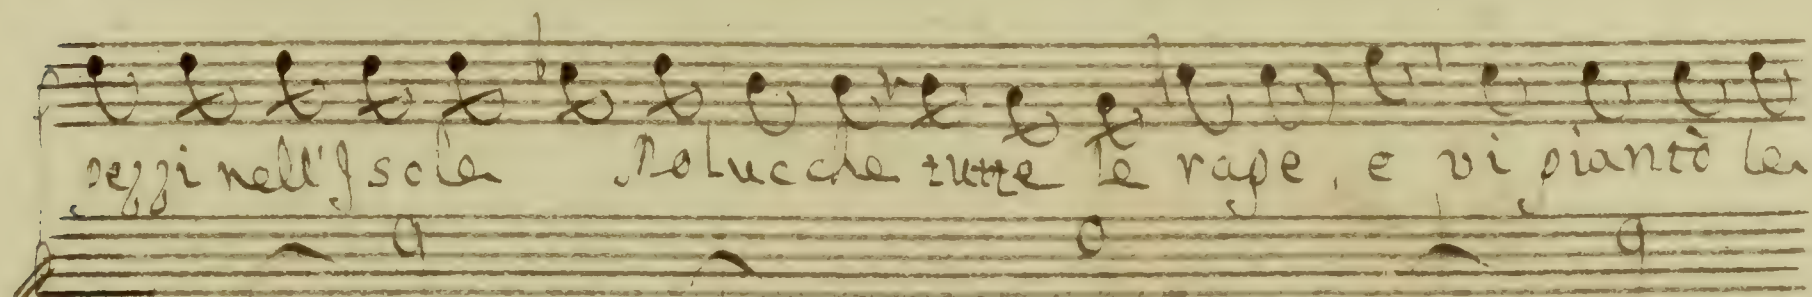 pezzi nell'Isole Molucche tutte le rape, e vi piantò le